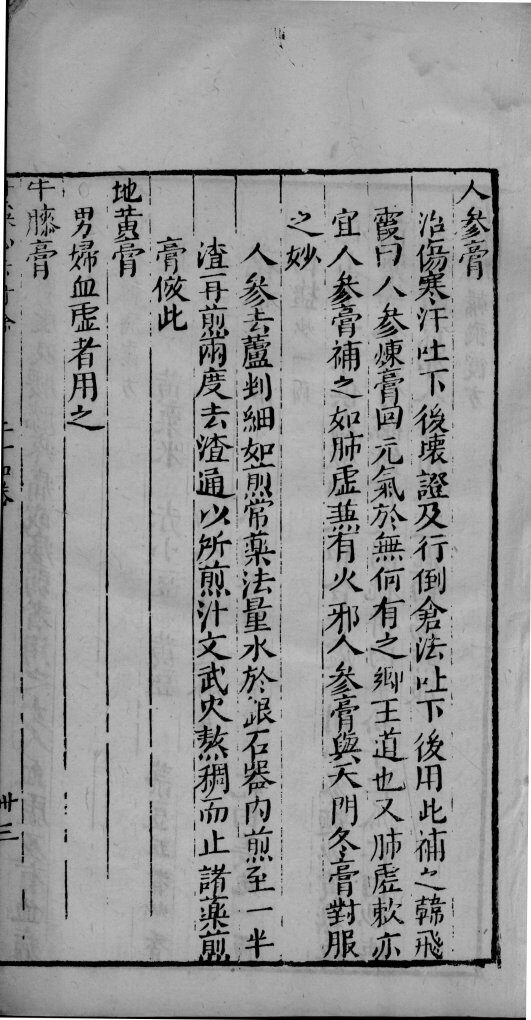 人參膏
治傷寒汗吐下後壞證及行倒倉法吐下後用此補之韓飛
霞曰人參煉膏回元氣於無何有之鄉王道也又肺虛欬亦
宜人參膏補之如肺虛兼有火邪人參膏與天門冬膏對服
之妙
人參去蘆剉細如煎常藥法量水於銀石器內煎至一半
渣再煎兩度去渣通以所煎汁文武火熬稠而止諸藥煎
膏倣此
地黃膏
男婦血虛者用之
牛膝膏
卅三